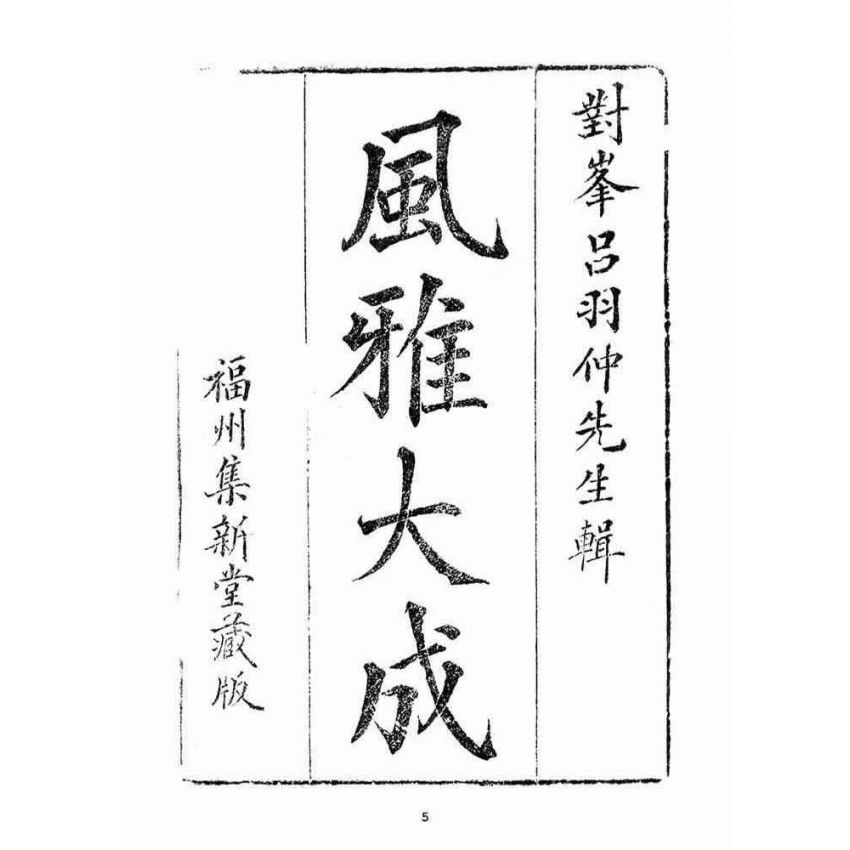 對峯呂羽仲先生輯
風雅大成
福州集新堂藏版
5